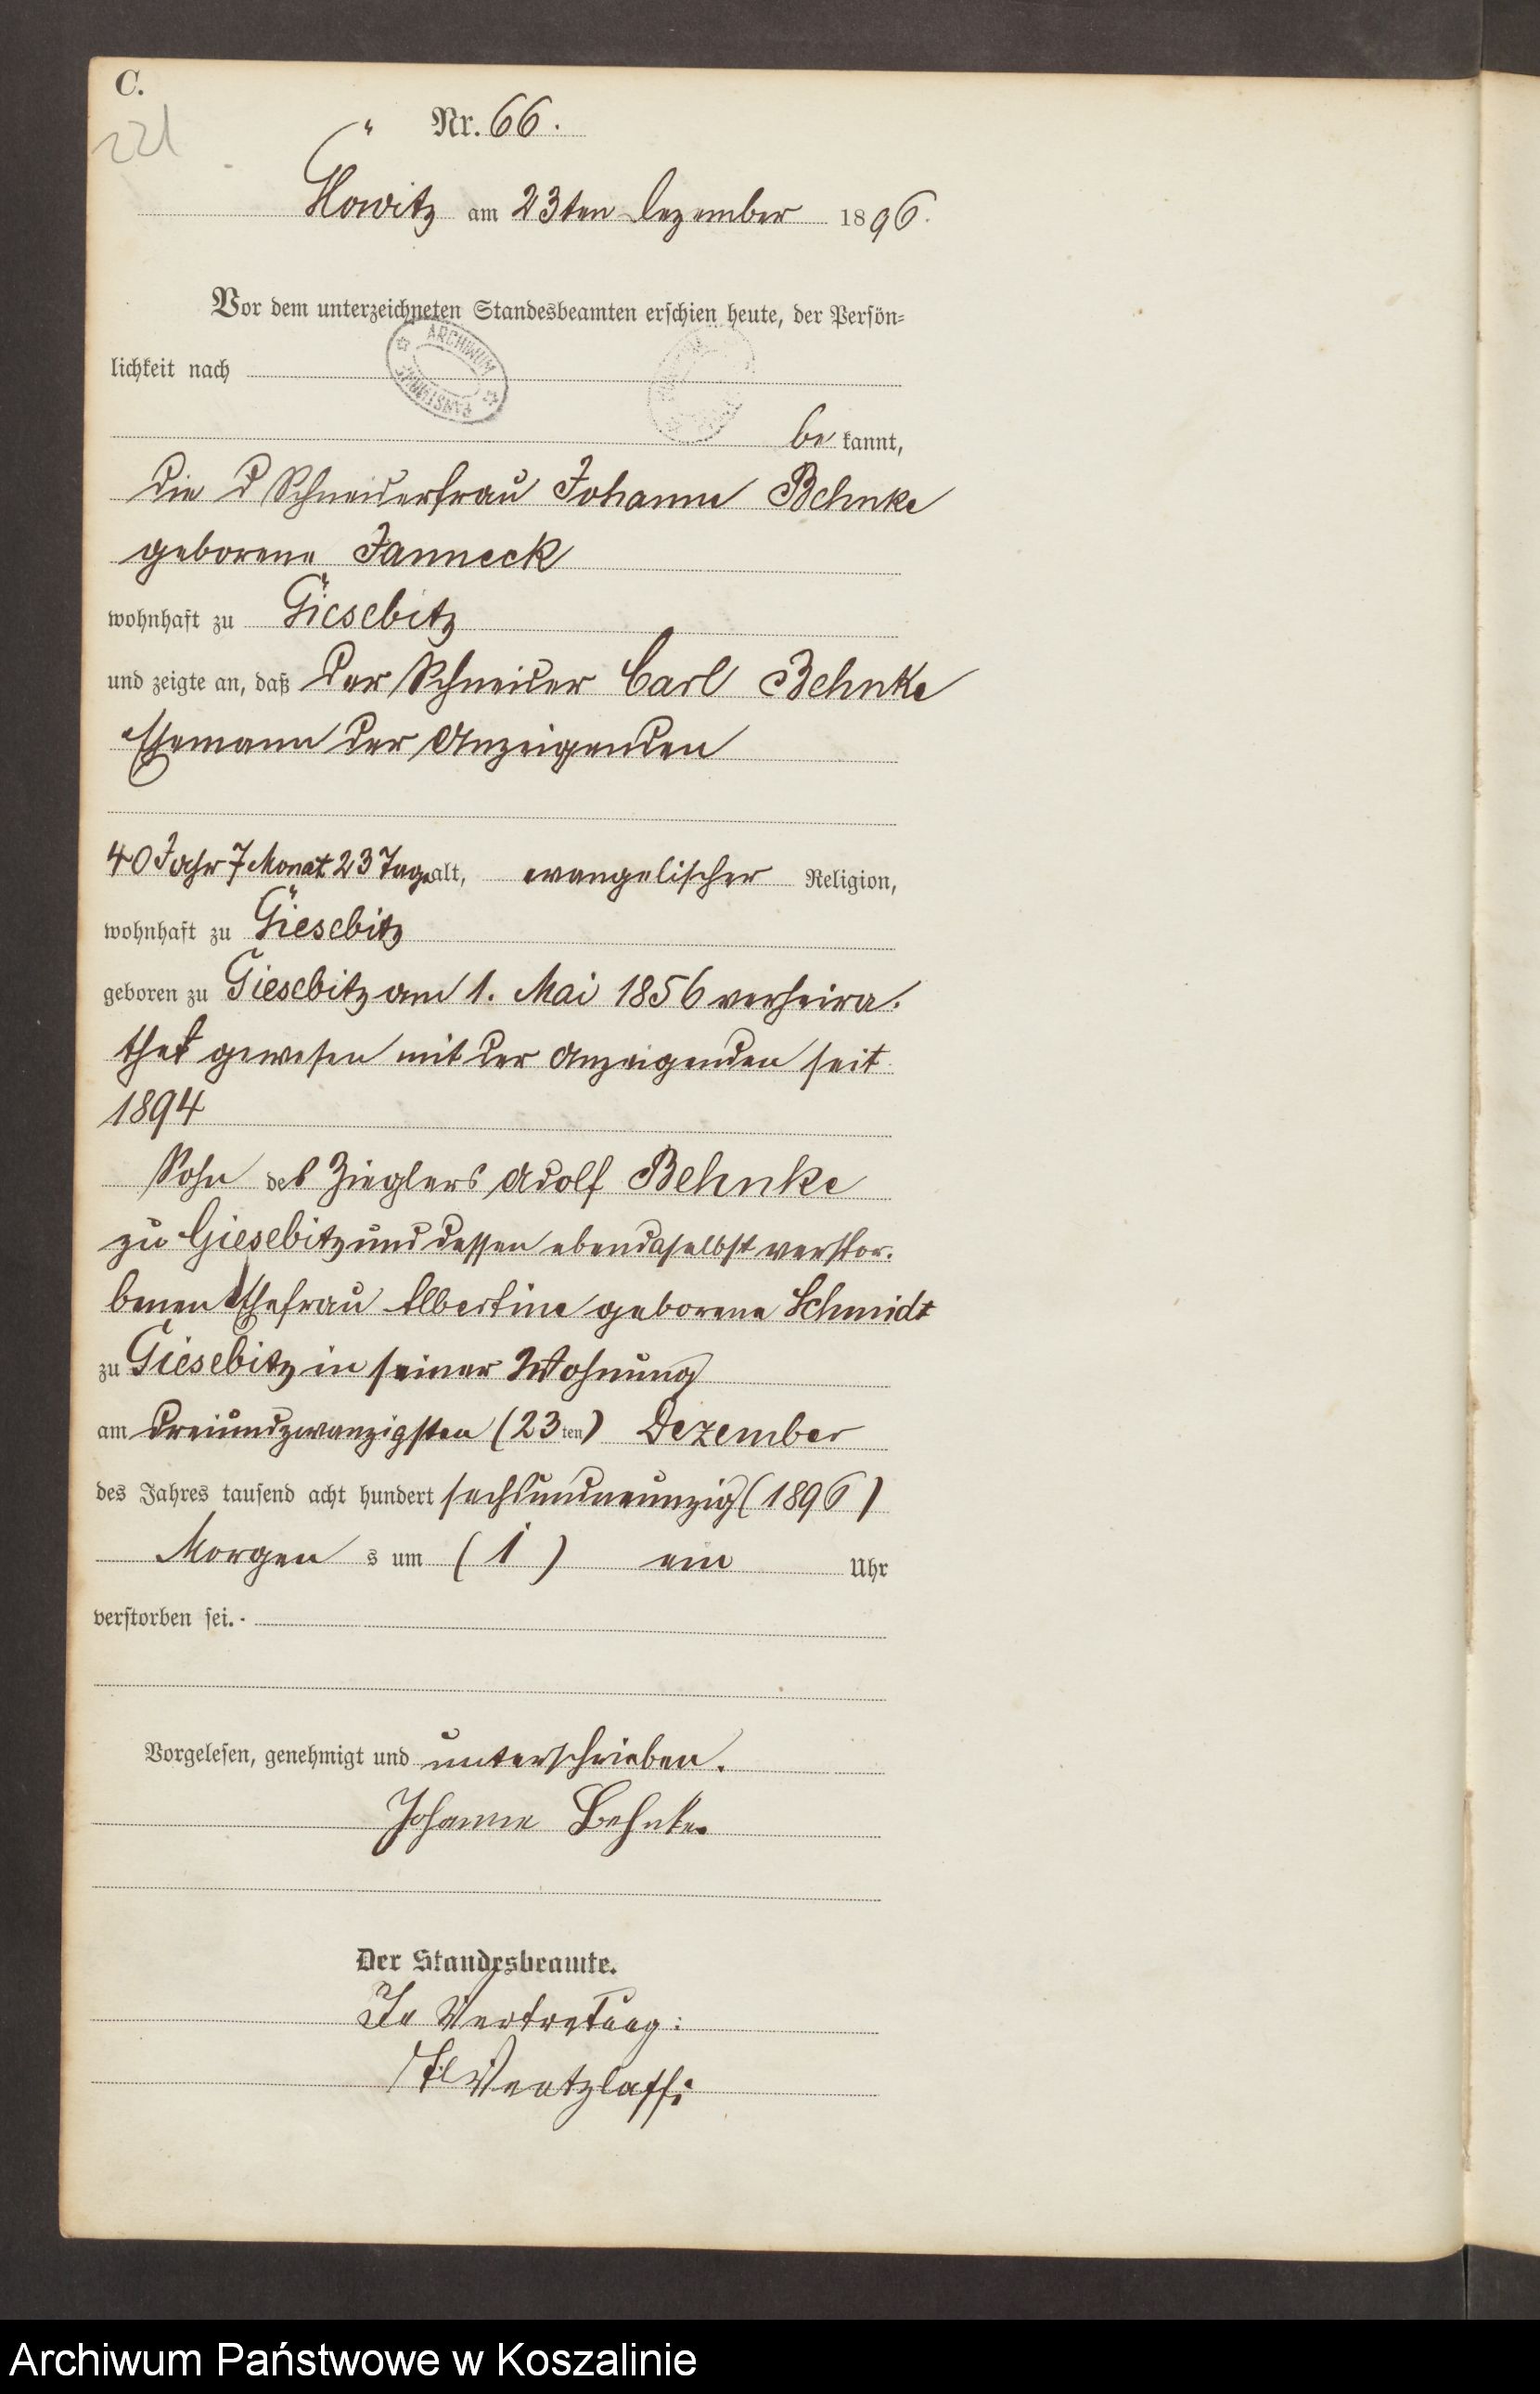 C.
221
Nr. 66.
Glowitz am 23ten Dezember 1896.
Vor dem unterzeichneten Standesbeamten erschien heute, der Persön-
lichkeit nach
ARCHIWUM
be kannt,
die Schneiderfrau Johanne Behnke
geborene Janneck
wohnhaft zu Giesebitz
und zeigte an, daß der Schneider Carl Behnke
Ehemann der Anzeigenden
40 Jahr 7 Monat 23 Tage alt, evangelischer Religion,
wohnhaft zu Giesebitz
geboren zu Giesebitz am 1. Mai 1856 verheira-
thet gewesen mit der Anzeigenden seit
1894
Sohn des Zieglers Adolf Behnke
zu Giesebitz und dessen ebendaselbst verstor-
benen Ehefrau Albertine geborene Schmidt
zu Giesebitz in seiner Wohnung
am dreiundzwanzigsten (23ten) Dezember
des Jahres tausend acht hundert sechsundneunzig (1896)
Morgen s um (1) ein Uhr
verstorben sei.
Vorgelesen, genehmigt und unterschrieben.
Johanne Behnke
Der Standesbeamte.
In Vertretung:
Wentzlaff
Archiwum Państwowe w Koszalinie